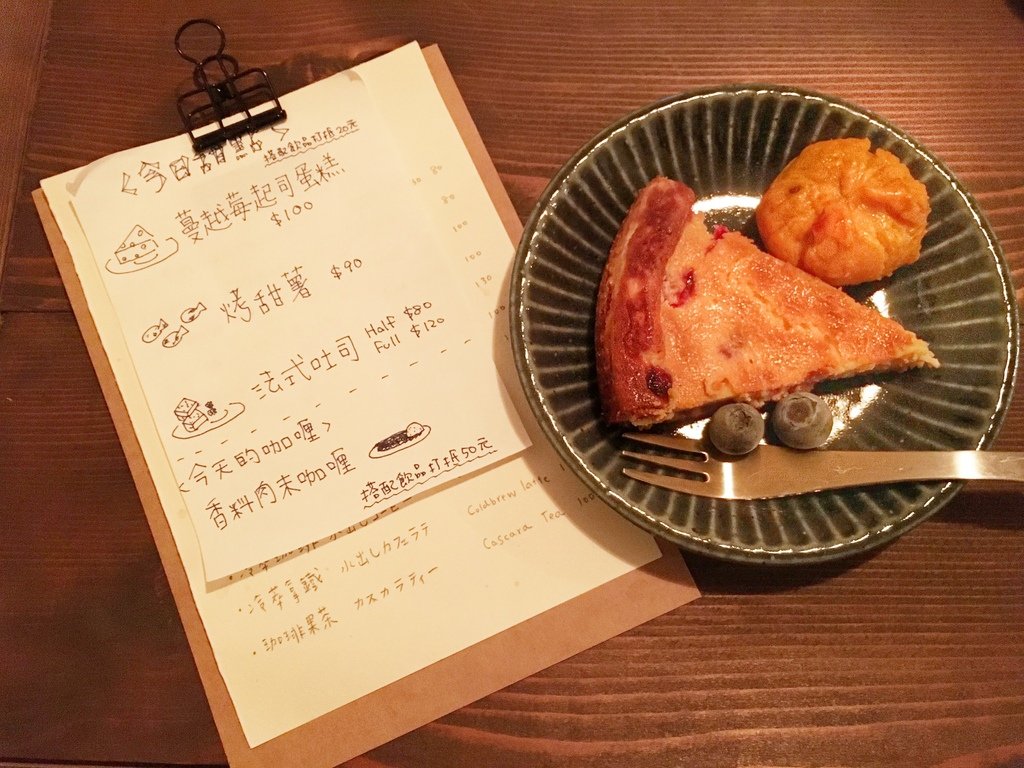 〈今日甜點〉
搭配飲品打折20元
蔓越莓起司蛋糕
$100
烤甜薯 $90
法式吐司 Half $80
Full $120
〈今天的咖喱〉
香料肉末咖喱
搭配飲品打折50元
80
80
100
100
130
Coldbrew latte
・冷萃拿鐵 水出しカフェラテ
Cascara Tea 100
・咖啡果茶 カスカラティー